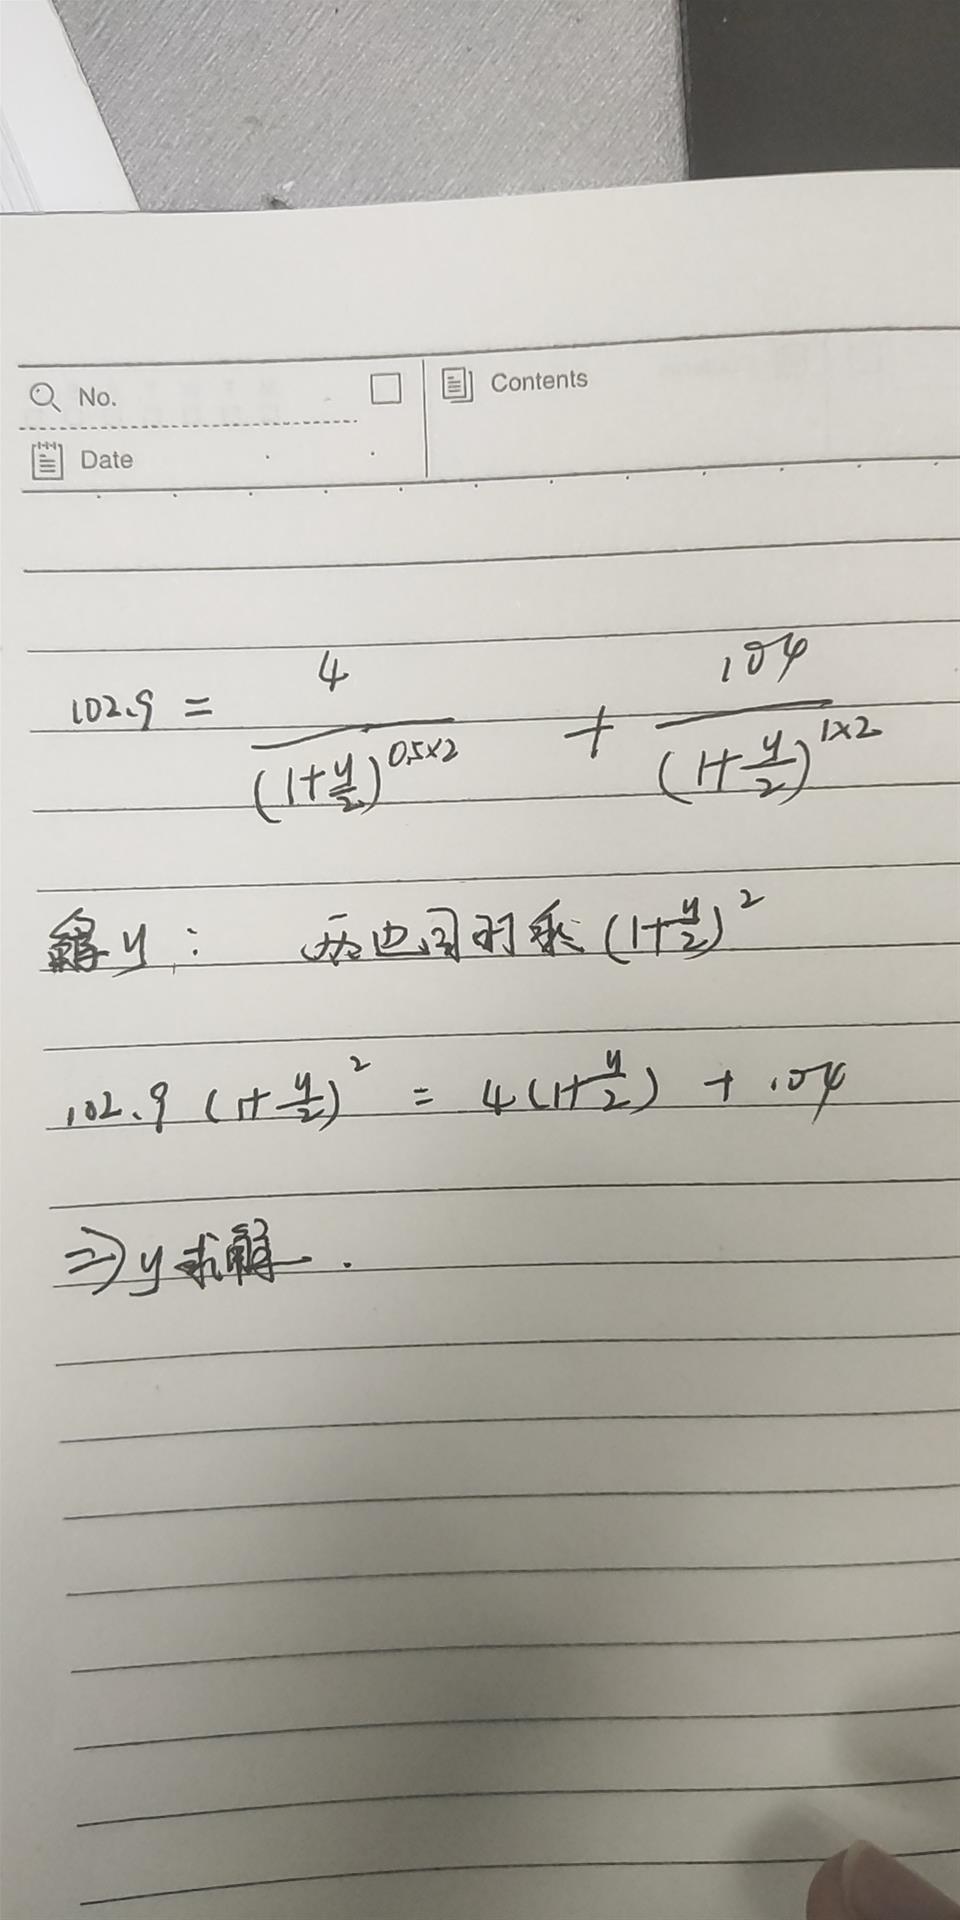 No.
Contents
Date
102.9 = 4/(1+y/2)^0.5×2 + 104/(1+y/2)^1×2
解y: 两边同时乘(1+y/2)^2
102.9 (1+y/2)^2 = 4(1+y/2) + 104
⇒ y求解.